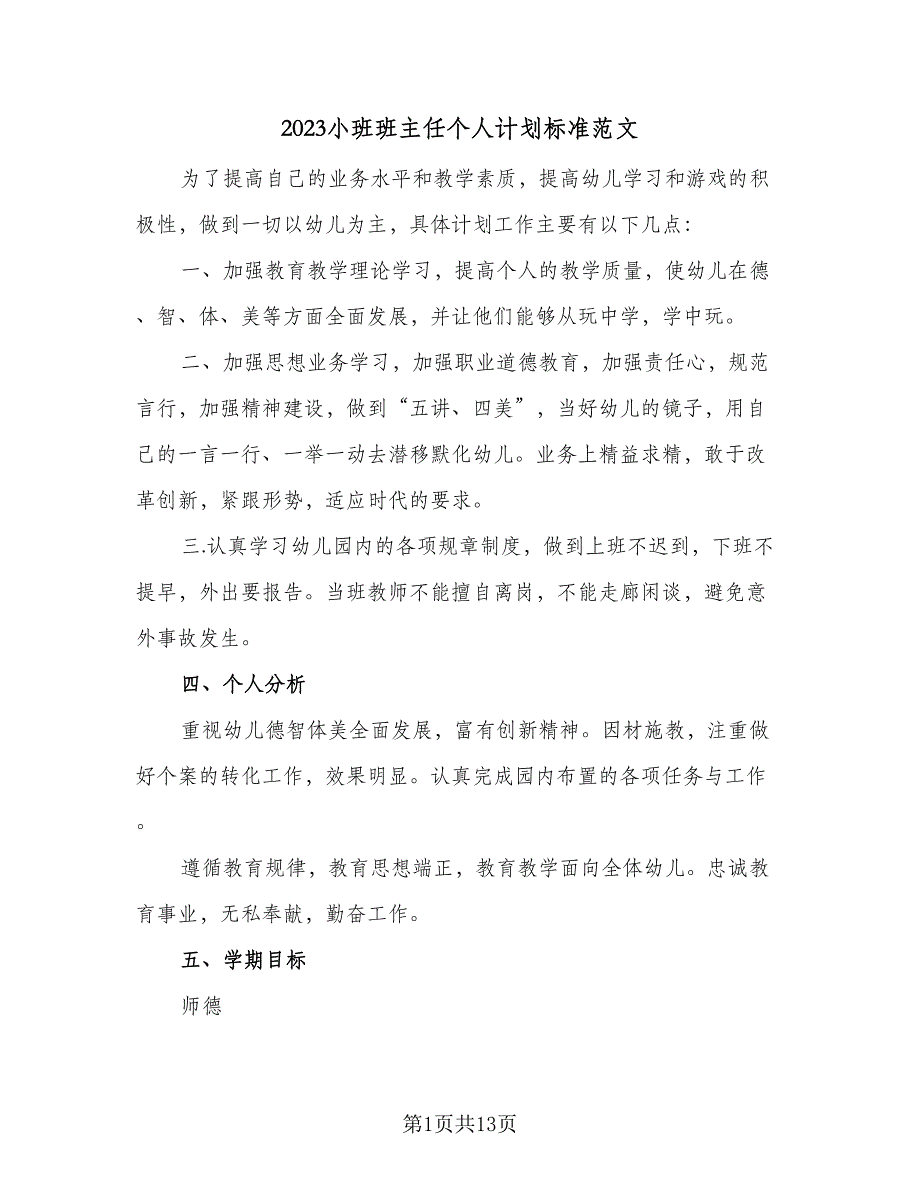 2023小班班主任个人计划标准范文
为了提高自己的业务水平和教学素质，提高幼儿学习和游戏的积
极性，做到一切以幼儿为主，具体计划工作主要有以下几点：
一、加强教育教学理论学习，提高个人的教学质量，使幼儿在德
、智、体、美等方面全面发展，并让他们能够从玩中学，学中玩。
二、加强思想业务学习，加强职业道德教育，加强责任心，规范
言行，加强精神建设，做到“五讲、四美”，当好幼儿的镜子，用自
己的一言一行、一举一动去潜移默化幼儿。业务上精益求精，敢于改
革创新，紧跟形势，适应时代的要求。
三.认真学习幼儿园内的各项规章制度，做到上班不迟到，下班不
提早，外出要报告。当班教师不能擅自离岗，不能走廊闲谈，避免意
外事故发生。
四、个人分析
重视幼儿德智体美全面发展，富有创新精神。因材施教，注重做
好个案的转化工作，效果明显。认真完成园内布置的各项任务与工作
。
遵循教育规律，教育思想端正，教育教学面向全体幼儿。忠诚教
育事业，无私奉献，勤奋工作。
五、学期目标
师德
第1页共13页